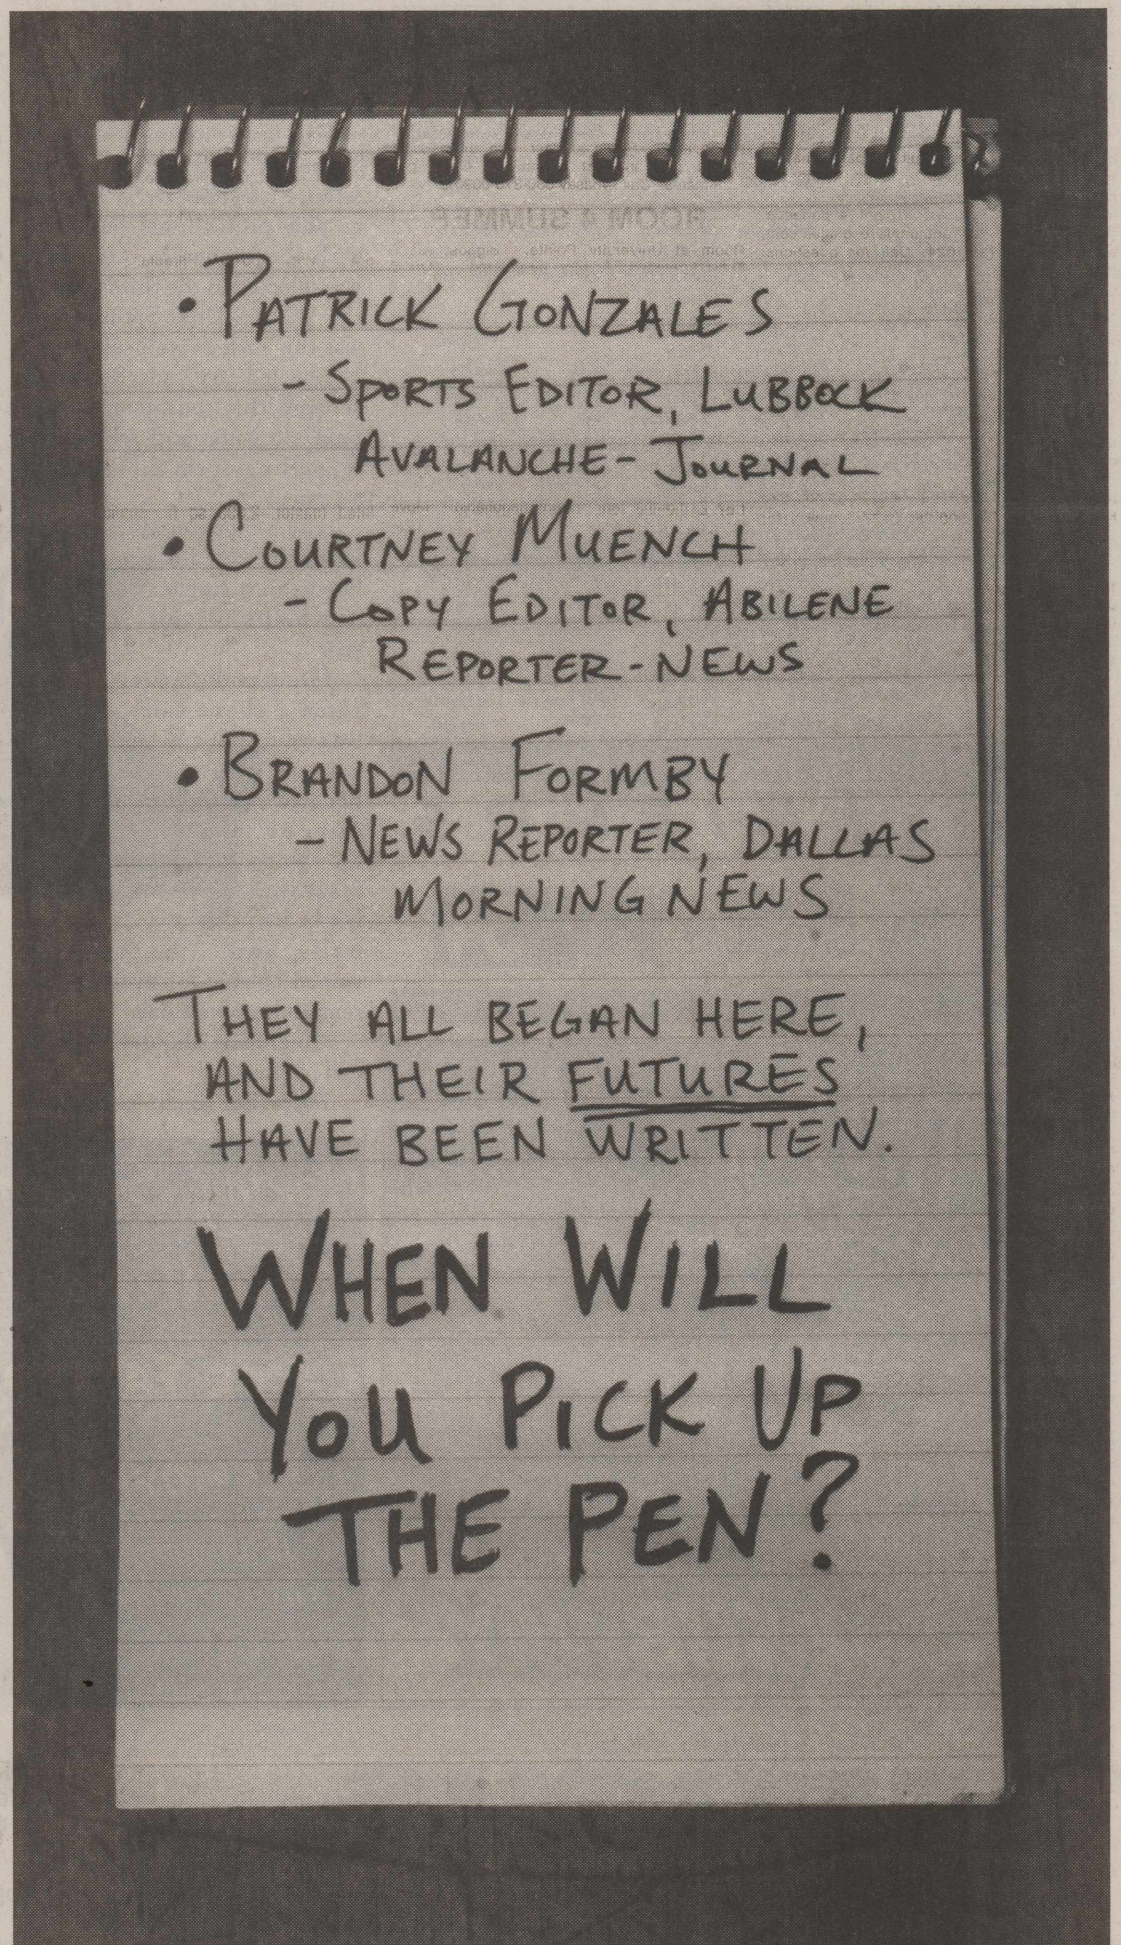 • PATRICK GONZALES
- SPORTS EDITOR, LUBBOCK
AVALANCHE-JOURNAL
• COURTNEY MUENCH
- COPY EDITOR, ABILENE
REPORTER-NEWS
• BRANDON FORMBY
- NEWS REPORTER, DALLAS
MORNING NEWS
THEY ALL BEGAN HERE,
AND THEIR FUTURES
HAVE BEEN WRITTEN.
WHEN WILL
YOU PICK UP
THE PEN?